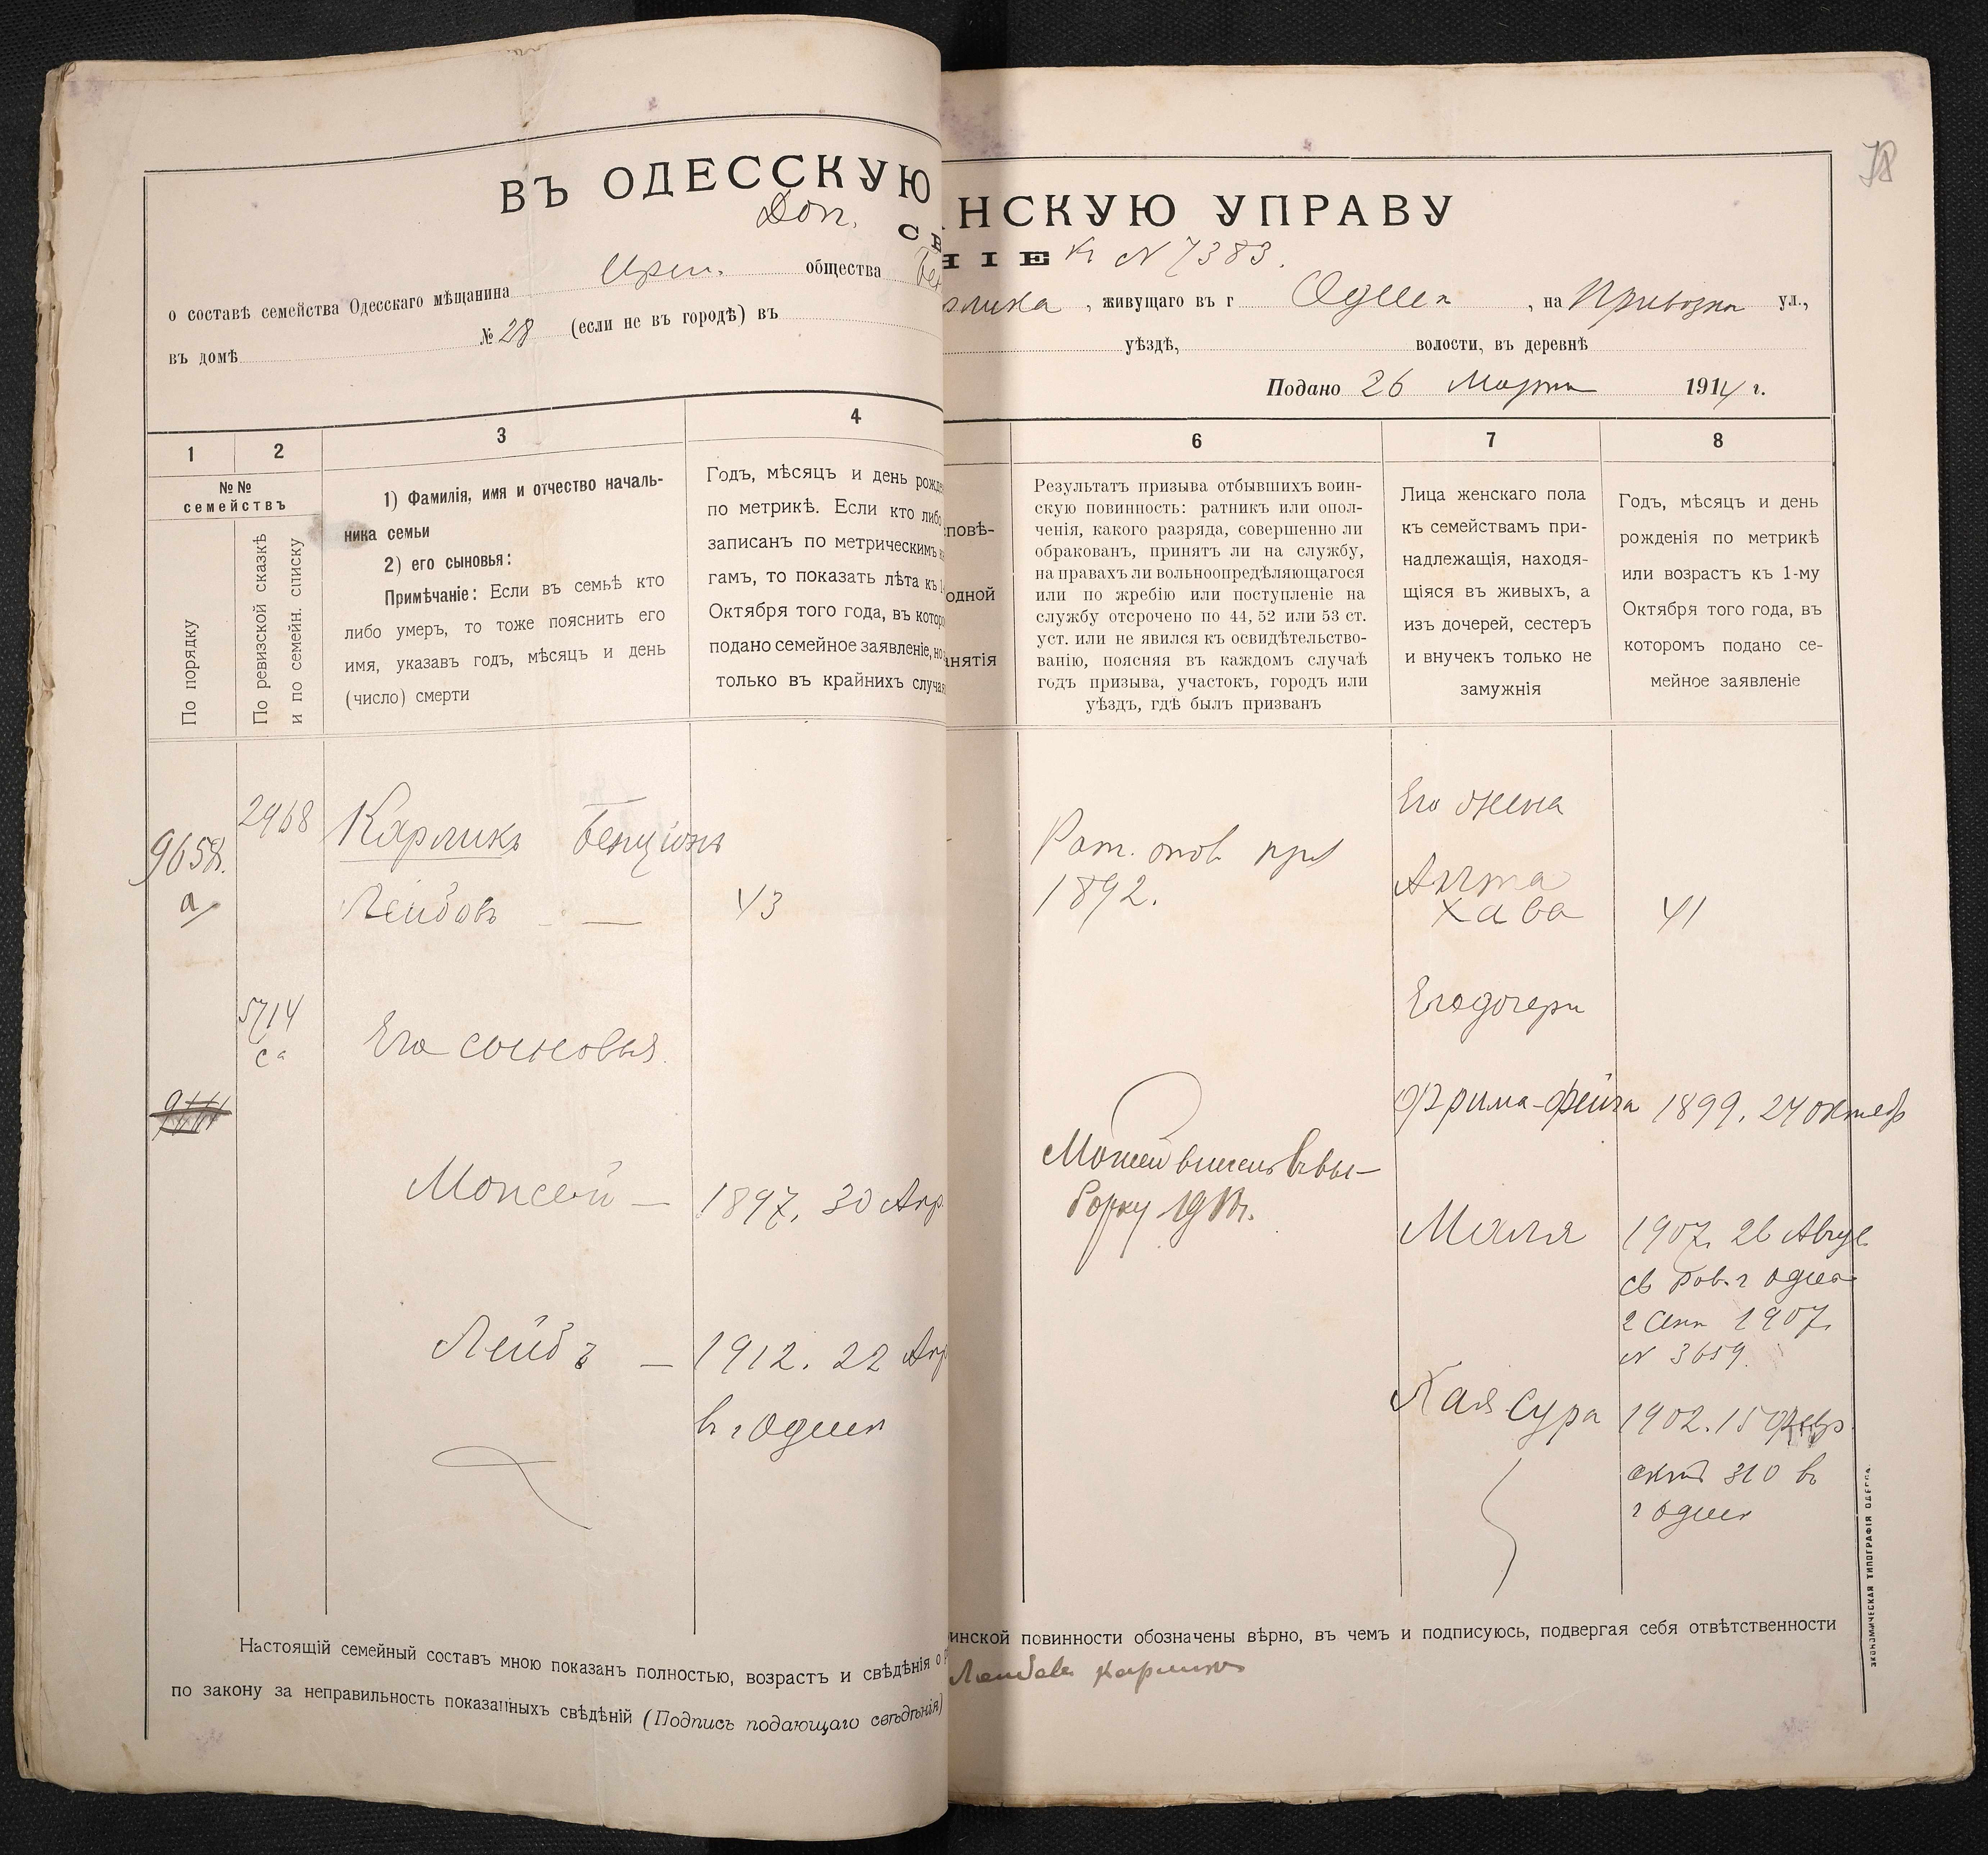 ВЪ ОДЕССКУЮ
Доп.
о составѣ семейства Одесскаго мѣщанина общества
въ домѣ № 28 (если не въ городѣ) въ
НСКУЮ УПРАВУ
НІЕ к N 7383.
, живущаго въ г Одессѣ , на Привозной ул.,
уѣздѣ, волости, въ деревнѣ
Подано 26 Марта 1914 г.
1
2
3
4
№№
семействъ
По порядку
По ревизской сказкѣ
и по семейн. списку
1) Фамилія, имя и отчество началь-
ника семьи
2) его сыновья:
Примѣчаніе: Если въ семьѣ кто
либо умеръ, то тоже пояснить его
имя, указавъ годъ, мѣсяцъ и день
(число) смерти
Годъ, мѣсяцъ и день рожде
по метрикѣ. Если кто либо
записанъ по метрическимъ
гамъ, то показать лѣта къ 1-
Октября того года, въ котор
подано семейное заявленіе, но
только въ крайнихъ случая
повѣ-
одной
анятія
6
7
8
Результатъ призыва отбывшихъ воин-
скую повинность: ратникъ или опол-
ченія, какого разряда, совершенно ли
обракованъ, принятъ ли на службу,
на правахъ ли вольноопредѣляющагося
или по жребію или поступленіе на
службу отсрочено по 44, 52 или 53 ст.
уст. или не явился къ освидѣтельство-
ванію, поясняя въ каждомъ случаѣ
годъ призыва, участокъ, городъ или
уѣздъ, гдѣ былъ призванъ
Лица женскаго пола
къ семействамъ при-
надлежащія, находя-
щіяся въ живыхъ, а
изъ дочерей, сестеръ
и внучекъ только не
замужнія
Годъ, мѣсяцъ и день
рожденія по метрикѣ
или возрастъ къ 1-му
Октября того года, въ
которомъ подано се-
мейное заявленіе
9658.
а
2968
Карликъ Бенціонъ
Лейбовъ — 43
5714
са
Его сыновья
Моисей — 1897, 30 Апр.
Лейбъ — 1912. 22 Апр
в г Одессѣ
Рат. опол
1892.
Моисей внесенъ въ вы-
борку
Его жена
Хава 41
Его дочери
Фрима-Фейга 1899, 24 октябр
Маля 1907, 26 Авгус
св Рав. г Одес
2 Сент 1907,
N 3659.
Хая Сура 1902. 15 Февр
актъ 310 въ
г Одессѣ
Настоящій семейный составъ мною показанъ полностью, возрастъ и свѣдѣнія о
по закону за неправильность показанныхъ свѣдѣній (Подпись подающаго свѣдѣнія)
инской повинности обозначены вѣрно, въ чемъ и подписуюсь, подвергая себя отвѣтственности
Лейбовъ Карликъ
ЭКОНОМИЧЕСКАЯ ТИПОГРАФІЯ ОДЕССА.